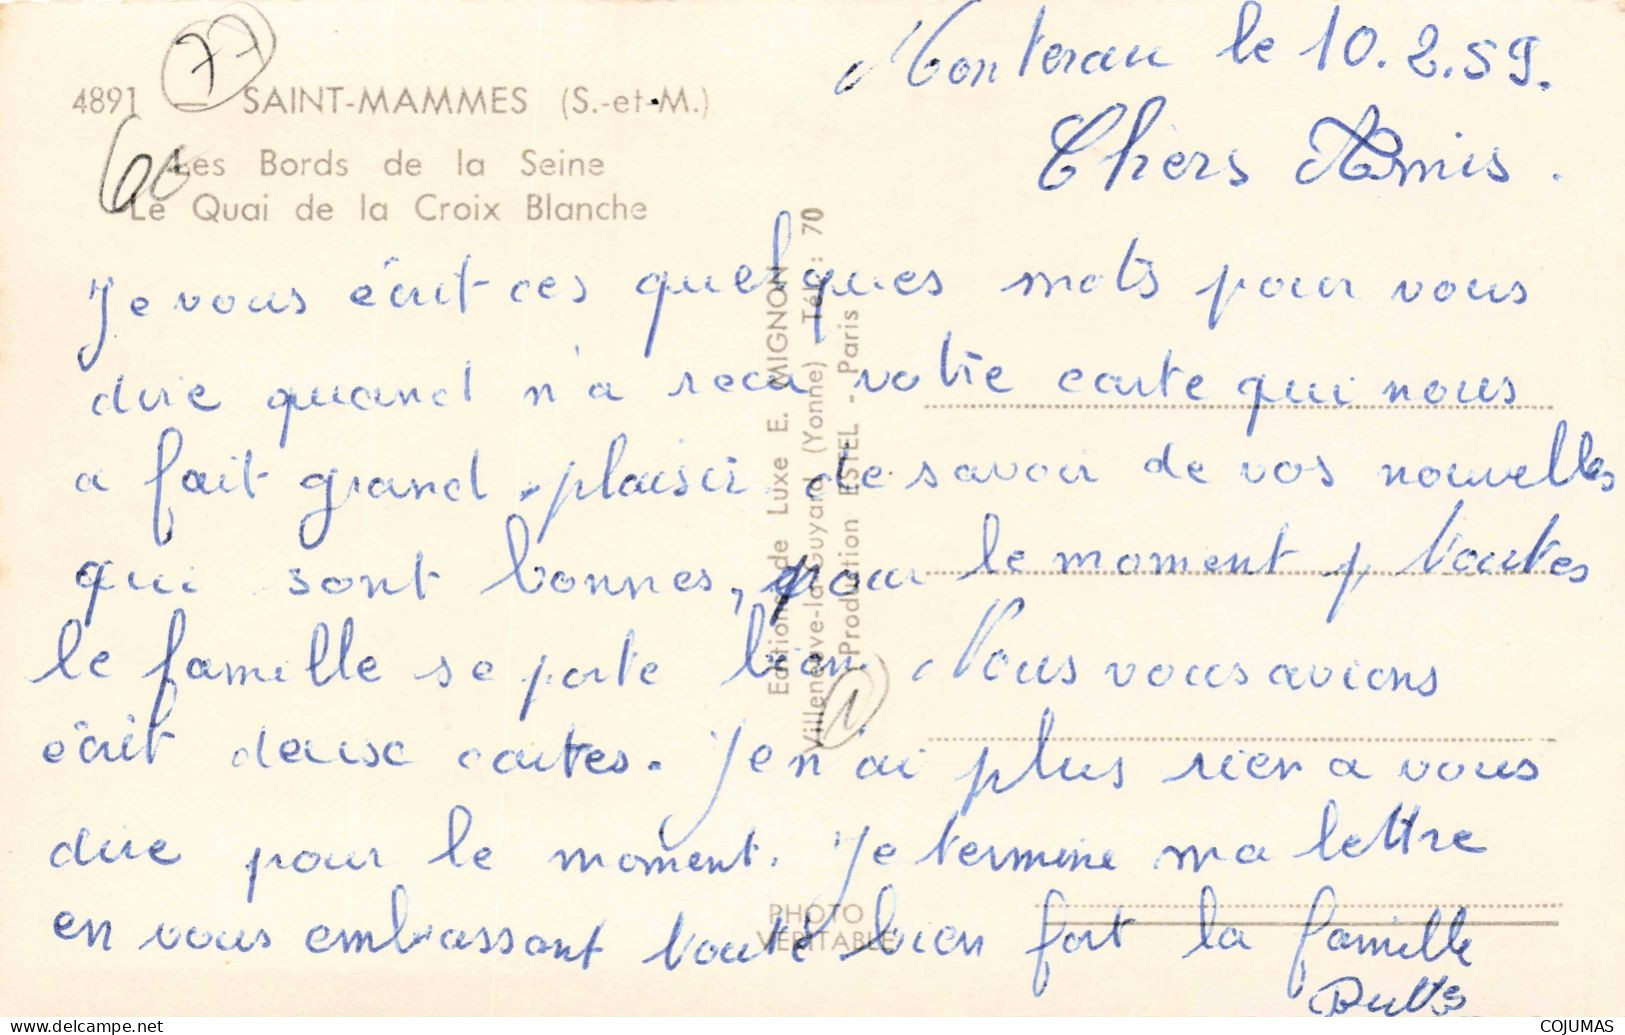 Monterau le 10.2.59.
Chèrs Amis.
4891 — SAINT-MAMMES (S.-et-M.)
Les Bords de la Seine
Le Quai de la Croix Blanche
77
60
Je vous écrit ces quelques mots pour vous
dire quand n'a recu votre carte qui nous
a fait grand plaisir de savoir de vos nouvelles
qui sont bonnes, pour le moment, toutes
le famille se porte bien. Nous vous avions
écrit deux cartes. Je n'ai plus rien a vous
dire pour le moment. Je termine ma lettre
en vous embrassant toute bien fort la famille
Editions de Luxe E. MIGNON
Villeneuve-la-Guyard (Yonne) Tél. : 70
Production ESTEL - Paris
1
PHOTO
VÉRITABLE
delcampe.net
COJUMAS